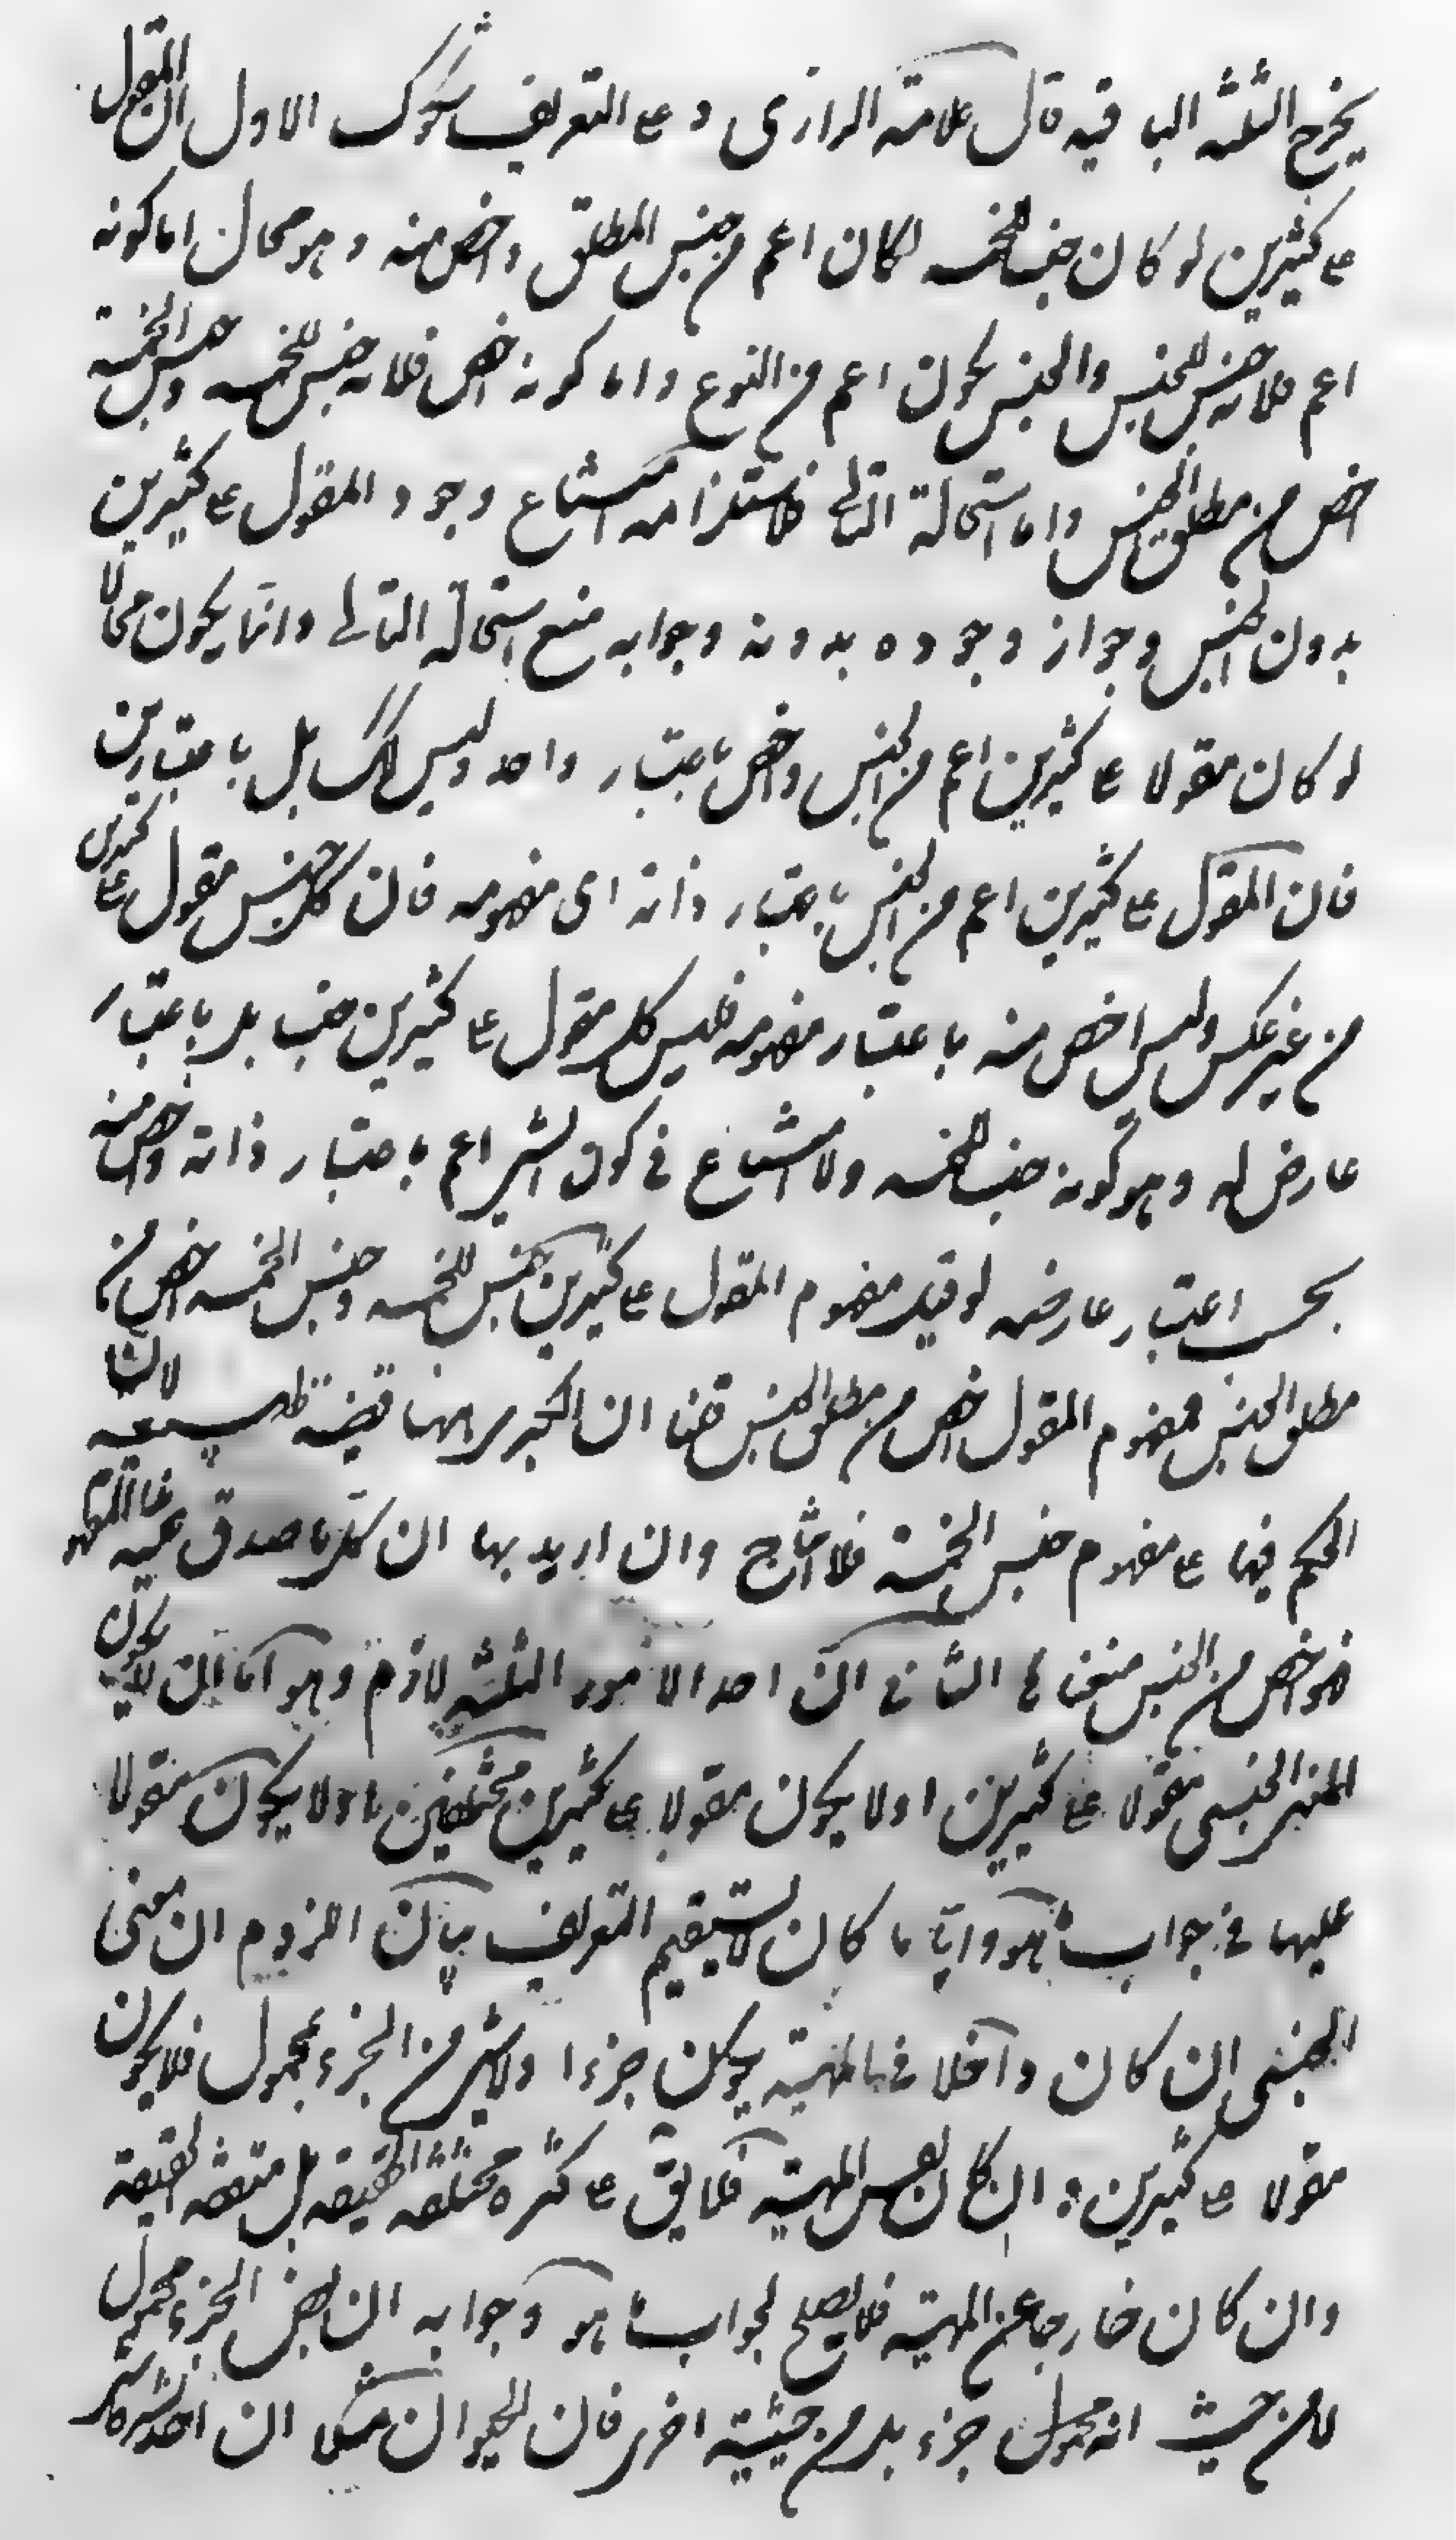 يخرج الثلثه الباقيه قال علامة الرازى و على التعريف شكوك الاول ان المقول
على كثيرين لو كان جنسا للخمسه لكان اعم من جنس المطلق واخص منه وهو محال اما كونه
اعم فلانه جنس للجنس والجنس يكون اعم من النوع واما كونه اخص فلانه جنس للخمسه وجنس الخمسة
اخص من مطلق الجنس واما استحالة التالى فلاستلزامه امتناع وجود المقول على كثيرين
بدون الجنس وجواز وجوده بدونه وجوابه منع استحالة التالى وانما يكون محالا
لو كان مقولا على كثيرين اعم من الجنس واخص باعتبار واحد وليس كك بل باعتبارين
فان المقول على كثيرين اعم من الجنس باعتبار ذاته اى مفهومه فان كل جنس مقول على كثيرين
من غير عكس وليس اخص منه باعتبار مفهومه فليس كل مقول على كثيرين جنسا بل باعتبار
عارض له وهو كونه جنسا للخمسه ولا امتناع فى كون الشئ اعم باعتبار ذاته واخص منه
بحسب اعتبار عارضه لو قيل مفهوم المقول على كثيرين جنس للخمسه وجنس الخمسه اخص من
مطلق الجنس فمفهوم المقول اخص من مطلق الجنس قلنا ان الكبرى ههنا قضية طبيعيه لان
الحكم فيها على مفهوم جنس الخمسة فلا انتاج وان اريد بها ان كل ما صدق عليه هذا المفهوم
فهو اخص من الجنس منعناها الثانى ان احد الامور الثلثه لازم وهو اما ان لا يكون
المعنى الجنسى مقولا على كثيرين او لا يكون مقولا على كثيرين مختلفين او لا يكون مقولا
عليها فى جواب ما هو وايا ما كان لا يستقيم التعريف بيان اللزوم ان معنى
الجنسى ان كان داخلا فى المهية يكون جزءا ولا شئ من الجزء بمحمول فلا يكون
مقولا على كثيرين وان كان نفس المهية فلا يق على كثره مختلفة الحقيقه بل متفقه الحقيقة
وان كان خارجا عن المهية فلا يصلح لجواب ما هو وجوابه ان بعض الجزء محمول
لا من حيث انه محمول جزء بل من حيثية اخرى فان الحيوان مثلا ان اخذ بشرط شئ